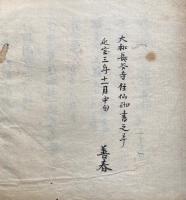 大和長谷寺住仙御書之本
延宝三年十一月中旬
善春